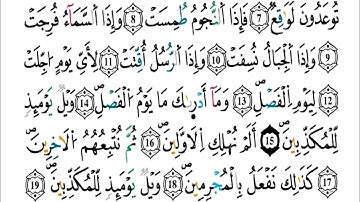 تُوعَدُونَ لَوَٰقِعٌ ۝٧ فَإِذَا ٱلنُّجُومُ طُمِسَتْ ۝٨ وَإِذَا ٱلسَّمَآءُ فُرِجَتْ
۝٩ وَإِذَا ٱلْجِبَالُ نُسِفَتْ ۝١٠ وَإِذَا ٱلرُّسُلُ أُقِّتَتْ ۝١١ لِأَىِّ يَوْمٍ أُجِّلَتْ
۝١٢ لِيَوْمِ ٱلْفَصْلِ ۝١٣ وَمَآ أَدْرَىٰكَ مَا يَوْمُ ٱلْفَصْلِ ۝١٤ وَيْلٌ يَوْمَئِذٍ
لِّلْمُكَذِّبِينَ ۝١٥ أَلَمْ نُهْلِكِ ٱلْأَوَّلِينَ ۝١٦ ثُمَّ نُتْبِعُهُمُ ٱلْءَاخِرِينَ
۝١٧ كَذَٰلِكَ نَفْعَلُ بِٱلْمُجْرِمِينَ ۝١٨ وَيْلٌ يَوْمَئِذٍ لِّلْمُكَذِّبِينَ ۝١٩